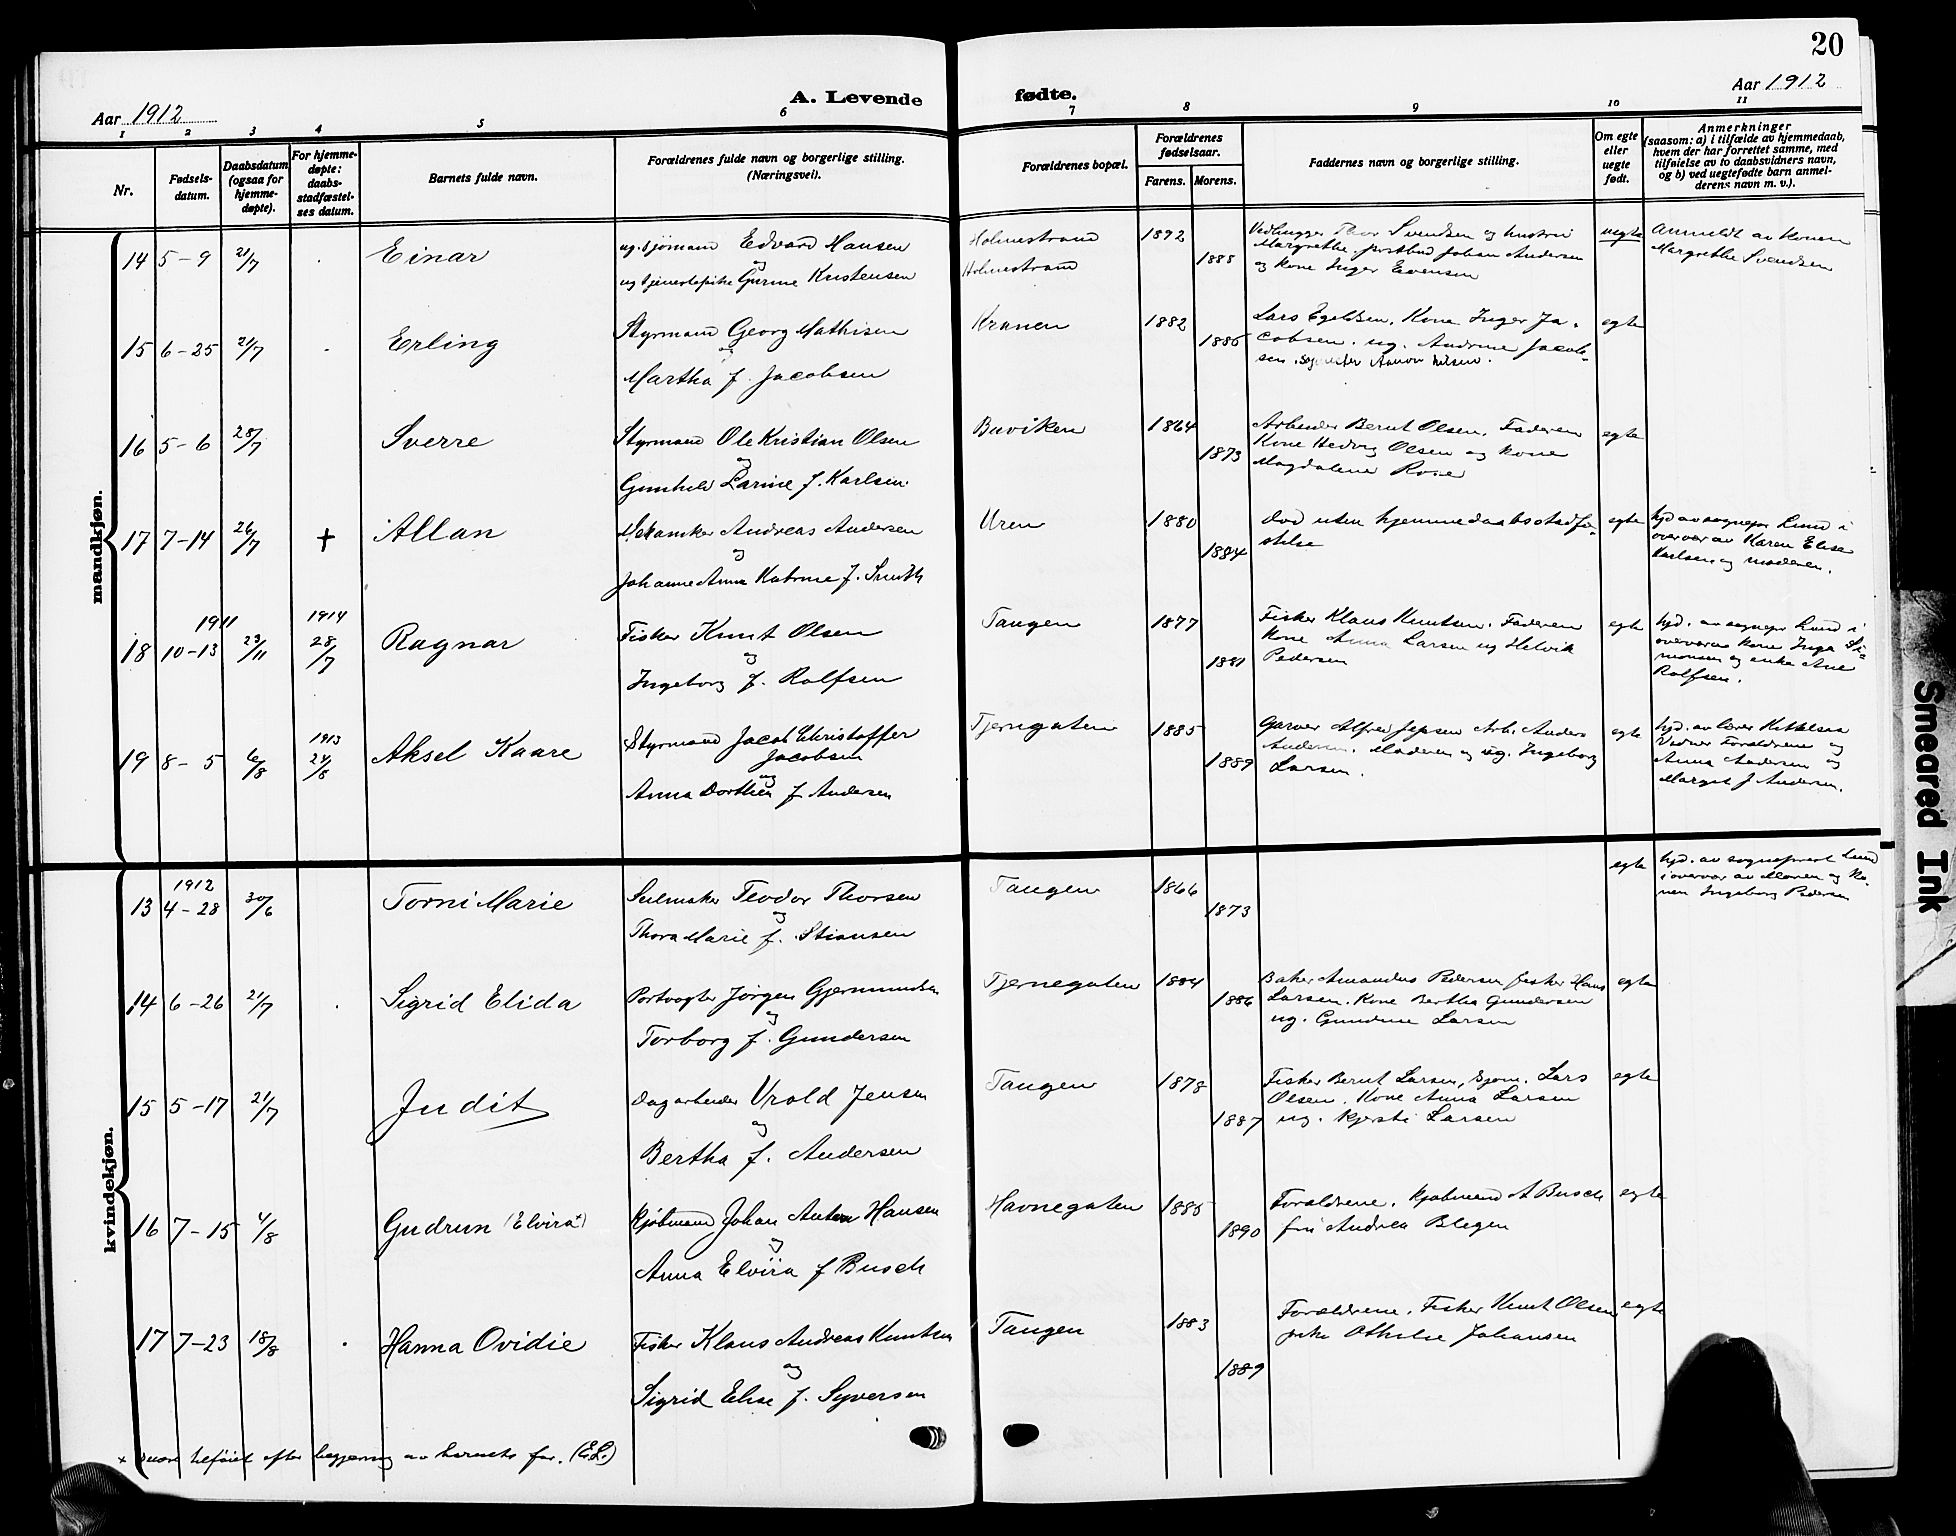 20
Aar 1912
A. Levende
fødte.
Aar 1912
1 2 3 4 5 6 7 8 9 10 11
Nr.
Fødsels-
datum.
Daabsdatum
(ogsaa for
hjemme-
døpte).
For hjemme-
døpte:
daabs-
stadfæstel-
ses datum.
Barnets fulde navn.
Forældrenes fulde navn og borgerlige stilling.
(Næringsvei).
Forældrenes bopæl.
Forældrenes
fødselsaar.
Farens. Morens.
Faddernes navn og borgerlige stilling.
Om egte
eller
uegte
født.
Anmerkninger
(saasom: a) i tilfælde av hjemmedaab,
hvem der har forrettet samme, med
tilføielse av to daabsvidners navn,
og b) ved uegtefødte barn anmel-
derens navn m. v.).
mandkjøn.
14 5-9 21/7 Einar
ug. sjømand Edvard Hansen
og
ug tjenestepike Gurine Kristensen
Holmestrand
Holmestrand
1892
1888
Vedhugger Thor Svendsen og hustru
Margrethe, postbud Johan Andersen
og kone Inger Evensen
uegte
Anmeldt av konen
Margrethe Svendsen
15 6-25 21/7 Erling
Styrmand Georg Mathisen
og
Martha f. Jacobsen
Kranen
1882
1886
Lars Egeldsen, Kone Inger Ja-
cobsen. ug. Andrine Jacob-
sen.
egte
16 5-6 28/7 Sverre
Styrmand Ole Kristian Olsen
og
Gunhild Larine f. Karlsen
Buviken
1864
1873
Arbeider Bernt Olsen. Faderen
Kone Hedvig Olsen og kone
Magdalene Rove
egte
17 7-14 26/7 † Allan
Mekaniker Andreas Andersen
og
Johanne Anna Katrine f. Smith
Uren
1880
1884
Død uten hjemmedaabsstadfæ-
stelse
egte
hjd av sognepr Lund i
overvær av Karen Elise
Karlsen og moderen.
18 1911 10-13 23/11 1914 28/7 Ragnar
Fisker Knut Olsen
og
Ingeborg f. Rolfsen
Tangen
1877
1881
Fisker Klaus Knutsen. Faderen
Kone Anna Larsen ug Helvik
Pedersen
egte
hjd. av sognepr Lund i
overvær av kone Inga Si-
monsen og enke Ane
Rolfsen.
19 8-5 6/8 1913 24/8 Aksel Kaare
Styrmand Jacob Christoffer
Jacobsen
og
Anna Dorthea f Andersen
Tjerngaten
1885
1889
Garver Alfred Jepsen Arb. Anders
Andersen. Moderen og ug. Ingeborg
Larsen.
egte
hjd. av lærer Kittelsen
Vidner Forældrene og
Anna Andersen og
Margit f Andersen.
kvindekjøn.
13 1912 4-28 30/6 Torni Marie
Seilmaker Teodor Thorsen
og
Thora Marie f. Stiansen
Tangen
1866
1873
egte
hjd. av sogneprest Lund
i overvær av Moren og Ko-
nen Ingeborg Pedersen
14 6-26 21/7 Sigrid Elida
Portvogter Jørgen Gjermundsen
og
Torborg f. Gundersen
Tjernegaten
1884
1886
Baker Amandus Pedersen fisker Hans
Larsen. Kone Bertha Gundersen
ug. Gundine Larsen
egte
15 5-17 21/7 Judit
Dagarbeider Vrold Jensen
og
Bertha f. Andersen
Tangen
1878
1887
Fisker Bernt Larsen, Sjøm. Lars
Olsen. Kone Anna Larsen
ug. Kjersti Larsen
egte
16 7-15 4/8 Gudrun (Elvira+)
Kjøbmand Johan Anton Hansen
og
Anna Elvira f Busch
Havnegaten
1885
1890
Forældrene. Kjøbmand A Busch
frk Andrea Blegen
egte
17 7-23 18/8 Hanna Ovidie
Fisker Klaus Andreas Knutsen
og
Sigrid Elise f. Syversen
Tangen
1883
1889
Forældrene. Fisker Knut Olsen
pike Othilie Johansen
egte
+ senere tilføiet efter begjæring av barnets far. (E.L.)
Smeared Ink